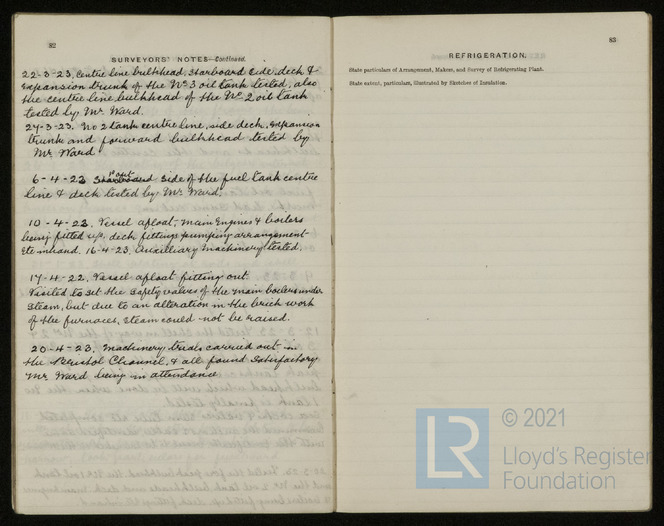 82
SURVEYORS' NOTES—Continued.
22-3-23. Centre line bulkhead, Starboard side, deck &
expansion trunk of the No 3 oil tank tested, also
the centre line bulkhead of the No 2 oil tank
tested by Mr. Ward.
27-3-23. No 2 tank centre line, side deck, expansion
trunk and forward bulkhead tested by
Mr Ward.
6-4-23 Port side of the fuel tank centre
line & deck tested by Mr Ward.
10-4-23. Vessel afloat, main Engines & boilers
being fitted up, deck fittings pumping arrangement
etc in hand. 16-4-23. Auxilliary Machinery tested.
17-4-22. Vessel afloat fitting out
Visited to set the safety valves of the main boilers under
Steam, but due to an alteration in the brick work
of the furnaces, steam could not be raised.
20-4-23. Machinery trials carried out in
the Bristol Channel, & all found satisfactory
Mr Ward being in attendance
83
REFRIGERATION.
State particulars of Arrangement, Makers, and Survey of Refrigerating Plant.
State extent, particulars, illustrated by Sketches of Insulation.
LR
© 2021
Lloyd's Register
Foundation